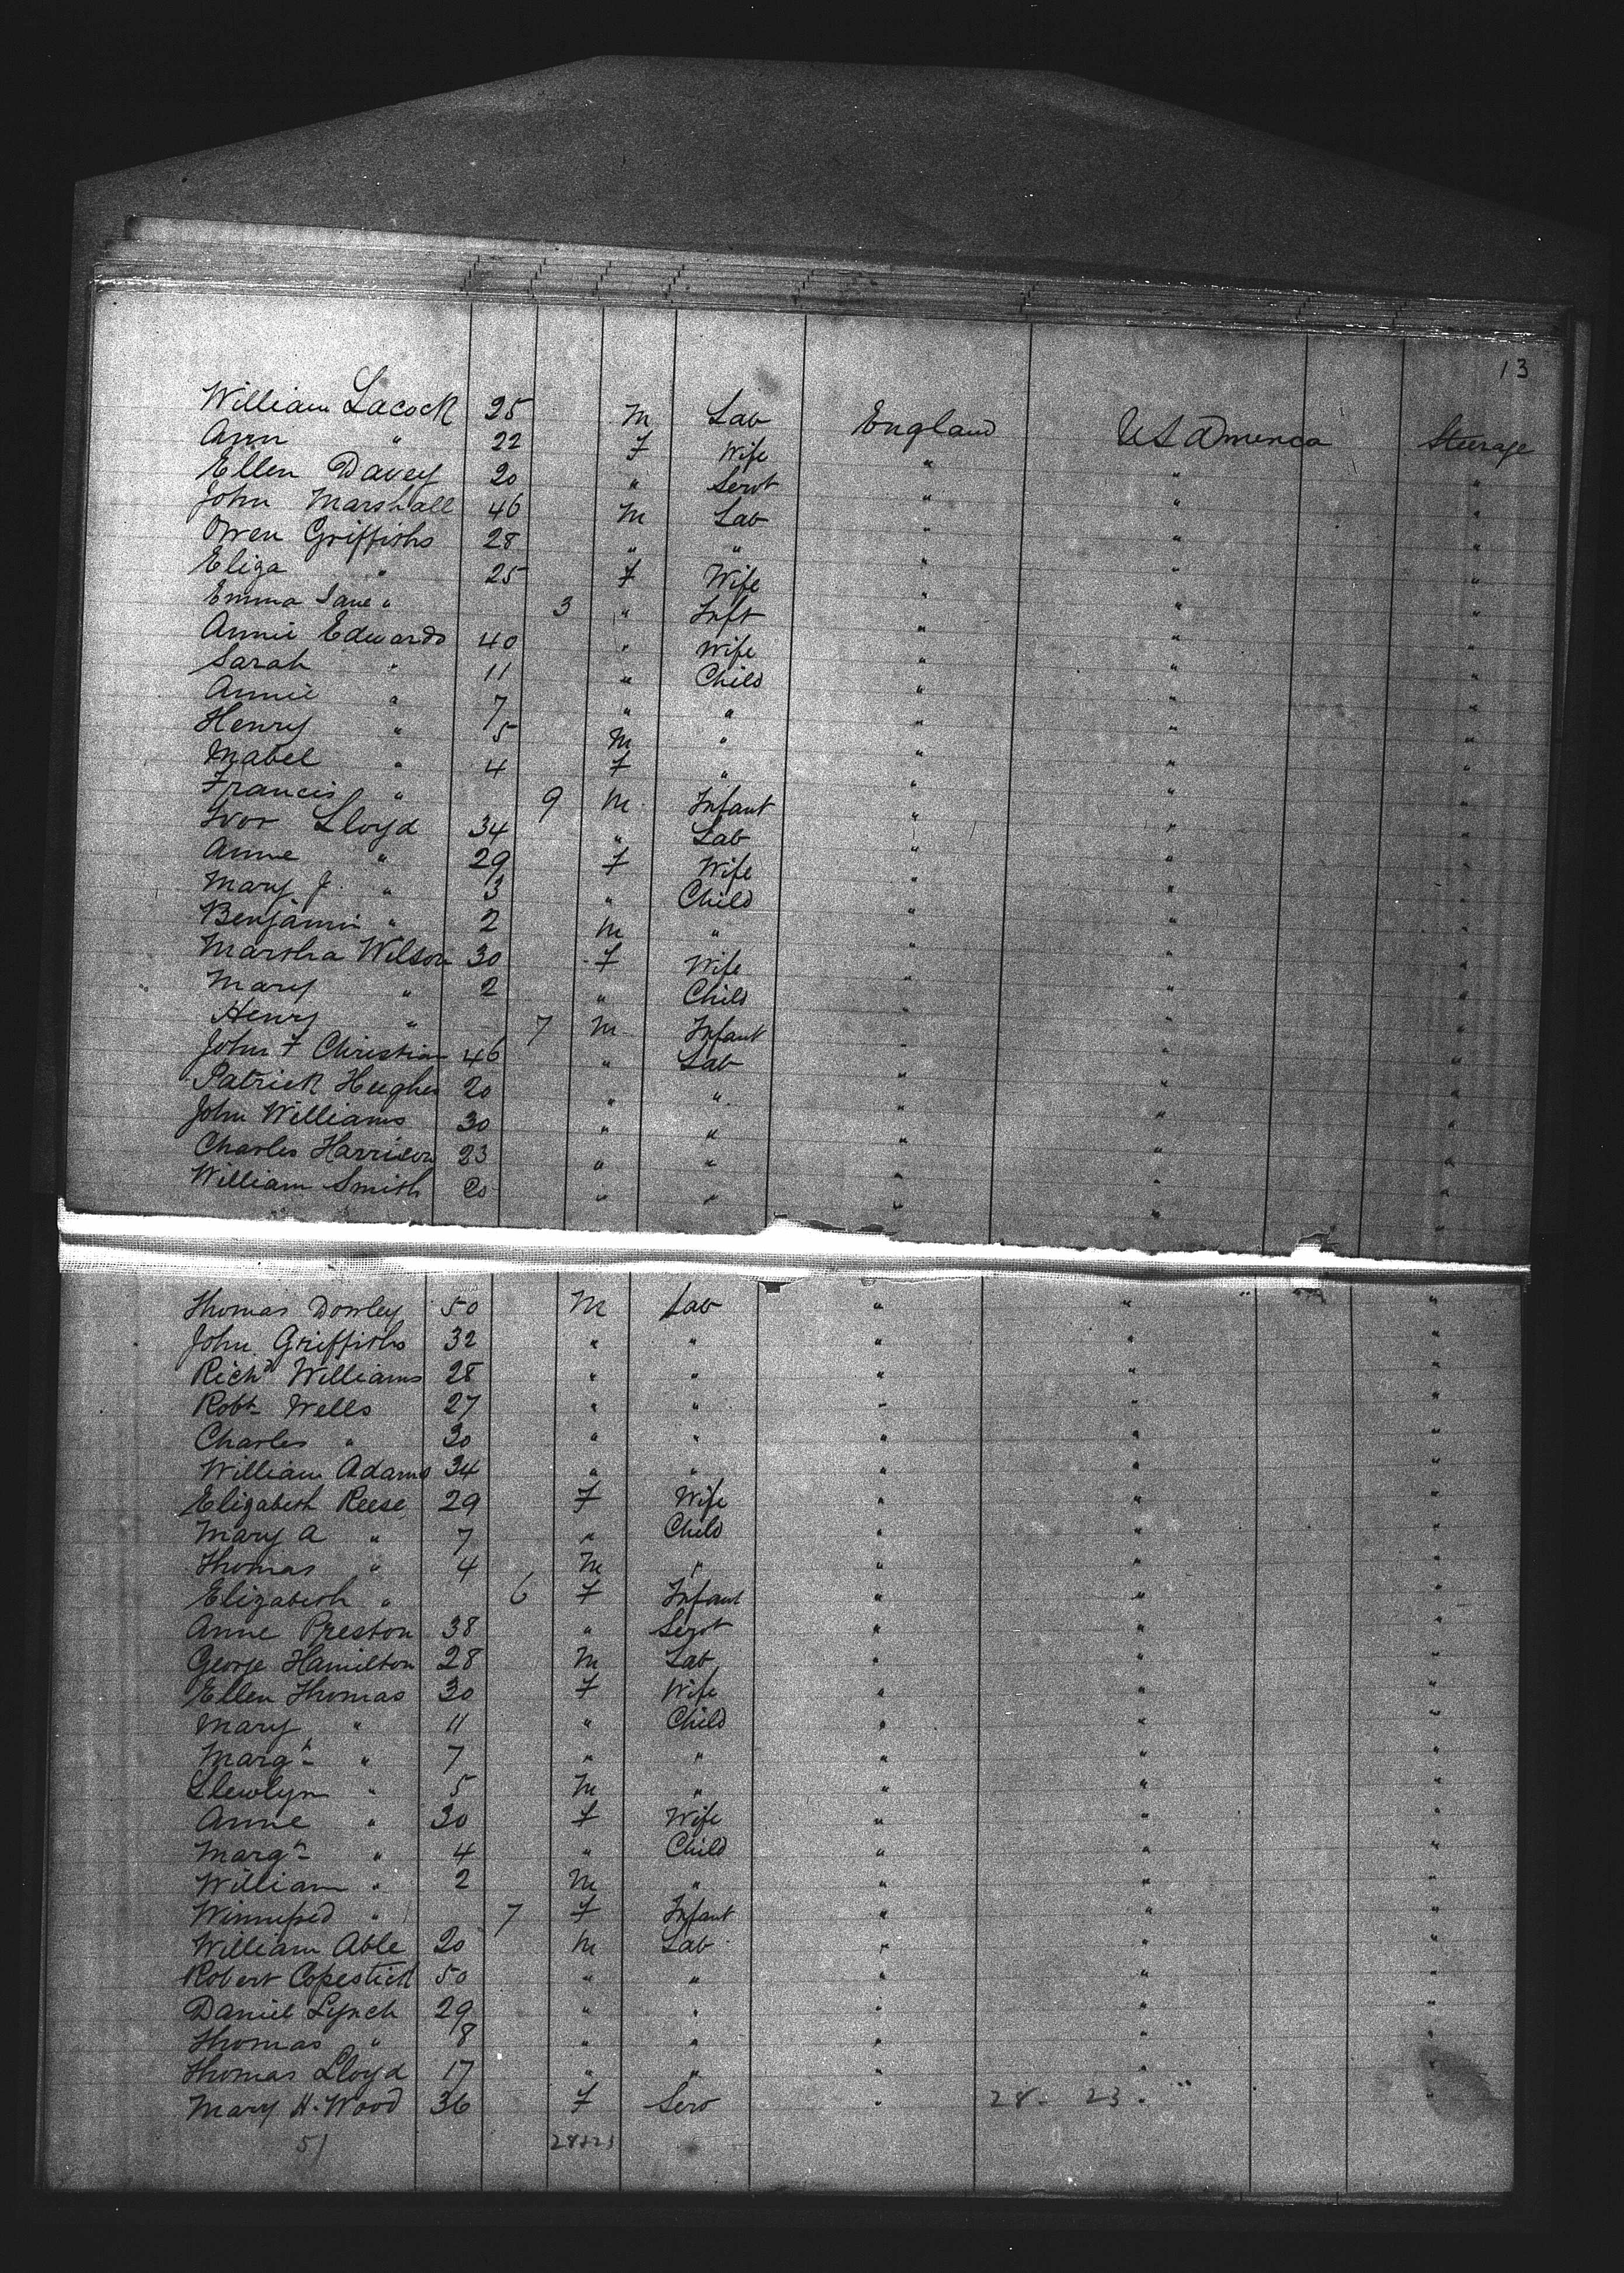 13
William Lacock 25 M Lab England US America Steerage
Ann " 22 F Wife " " "
Ellen Davey 20 " Servt " " "
John Marshall 46 M Lab " " "
Owen Griffiths 28 " " " " "
Eliza " 25 F Wife " " "
Emma Jane " 3 " Inft " " "
Annie Edwards 40 " Wife " " "
Sarah " 11 " Child " " "
Annie " 7 " " " " "
Henry " 5 M " " " "
Mabel " 4 F " " " "
Francis " 9 M Infant " " "
Ivor Lloyd 34 " Lab " " "
Anne " 29 F Wife " " "
Mary J. " 3 " Child " " "
Benjamin " 2 M " " " "
Martha Wilson 30 F Wife " " "
Mary " 2 " Child " " "
Henry " 7 M Infant " " "
John F Christian 46 " Lab " " "
Patrick Hughes 20 " " " " "
John Williams 30 " " " " "
Charles Harrison 23 " " " " "
William Smith 20 " " " " "
Thomas Dowley 50 M Lab " " "
John Griffiths 32 " " " " "
Richd Williams 28 " " " " "
Robt Wells 27 " " " " "
Charles " 30 " " " " "
William Adams 34 " " " " "
Elizabeth Reese 29 F Wife " " "
Mary A " 7 " Child " " "
Thomas " 4 M " " " "
Elizabeth " 6 F Infant " " "
Anne Preston 38 " Servt " " "
George Hamilton 28 M Lab " " "
Ellen Thomas 30 F Wife " " "
Mary " 11 " Child " " "
Margt " 7 " " " " "
Llewlyn " 5 M " " " "
Anne " 30 F Wife " " "
Margt " 4 " Child " " "
William " 2 M " " " "
Winnifred " 7 F Infant " " "
William Able 20 M Lab " " "
Robert Copestick 50 " " " " "
Daniel Lynch 29 " " " " "
Thomas " 8 " " " " "
Thomas Lloyd 17 " " " " "
Mary H. Wood 36 F Serv " 28 - 23 " "
51 28+23